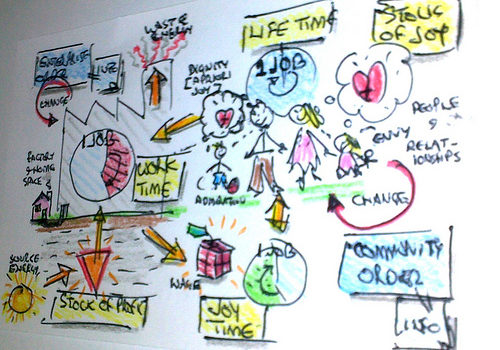 WASTE &
ENERGY
LIFE TIME
STOCK
OF JOY
ENTERPRISE
ORDER
CHANGE
DIGNITY
JOY
1 JOB
PEOPLE
&
RELAT-
IONSHIPS
ENVY
1 JOB
WORK
TIME
FACTORY
& HOME
SPACE
CHANGE
SOURCE
ENERGY
WAGE
1 JOB
COMMUNITY
ORDER
STOCK OF
JOY
TIME
INFO